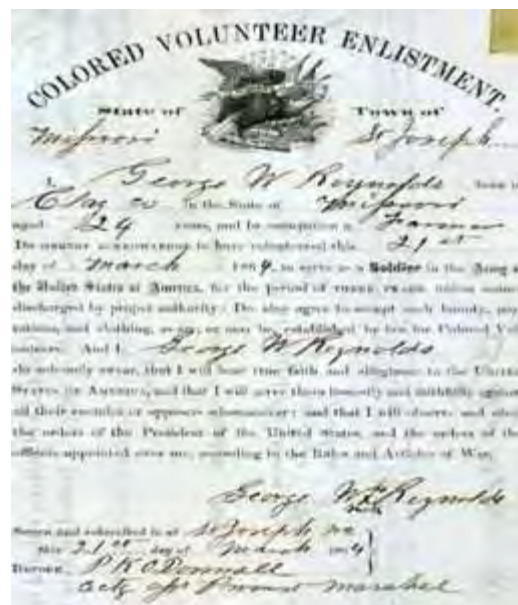 COLORED VOLUNTEER ENLISTMENT.
State of Town of
Missouri St Joseph
I, George W Reynolds born in
Clay co in the State of Missouri
aged 29 years, and by occupation a Farmer
Do hereby acknowledge to have volunteered this 21st
day of March 1864, to serve as a Soldier in the Army of
the United States of America, for the period of THREE YEARS, unless sooner
discharged by proper authority: Do also agree to accept such bounty, pay,
rations, and clothing, as are, or may be, established by law for Colored Vol-
unteers. And I, George W Reynolds
do solemnly swear, that I will bear true faith and allegiance to the United
States of America, and that I will serve them honestly and faithfully against
all their enemies or opposers whomsoever; and that I will observe and obey
the orders of the President of the United States, and the orders of the
officers appointed over me, according to the Rules and Articles of War.
George W Reynolds
Sworn and subscribed to at St Joseph Mo
this 21st day of March 1864
Before P K O'Donnall
actg Marshal